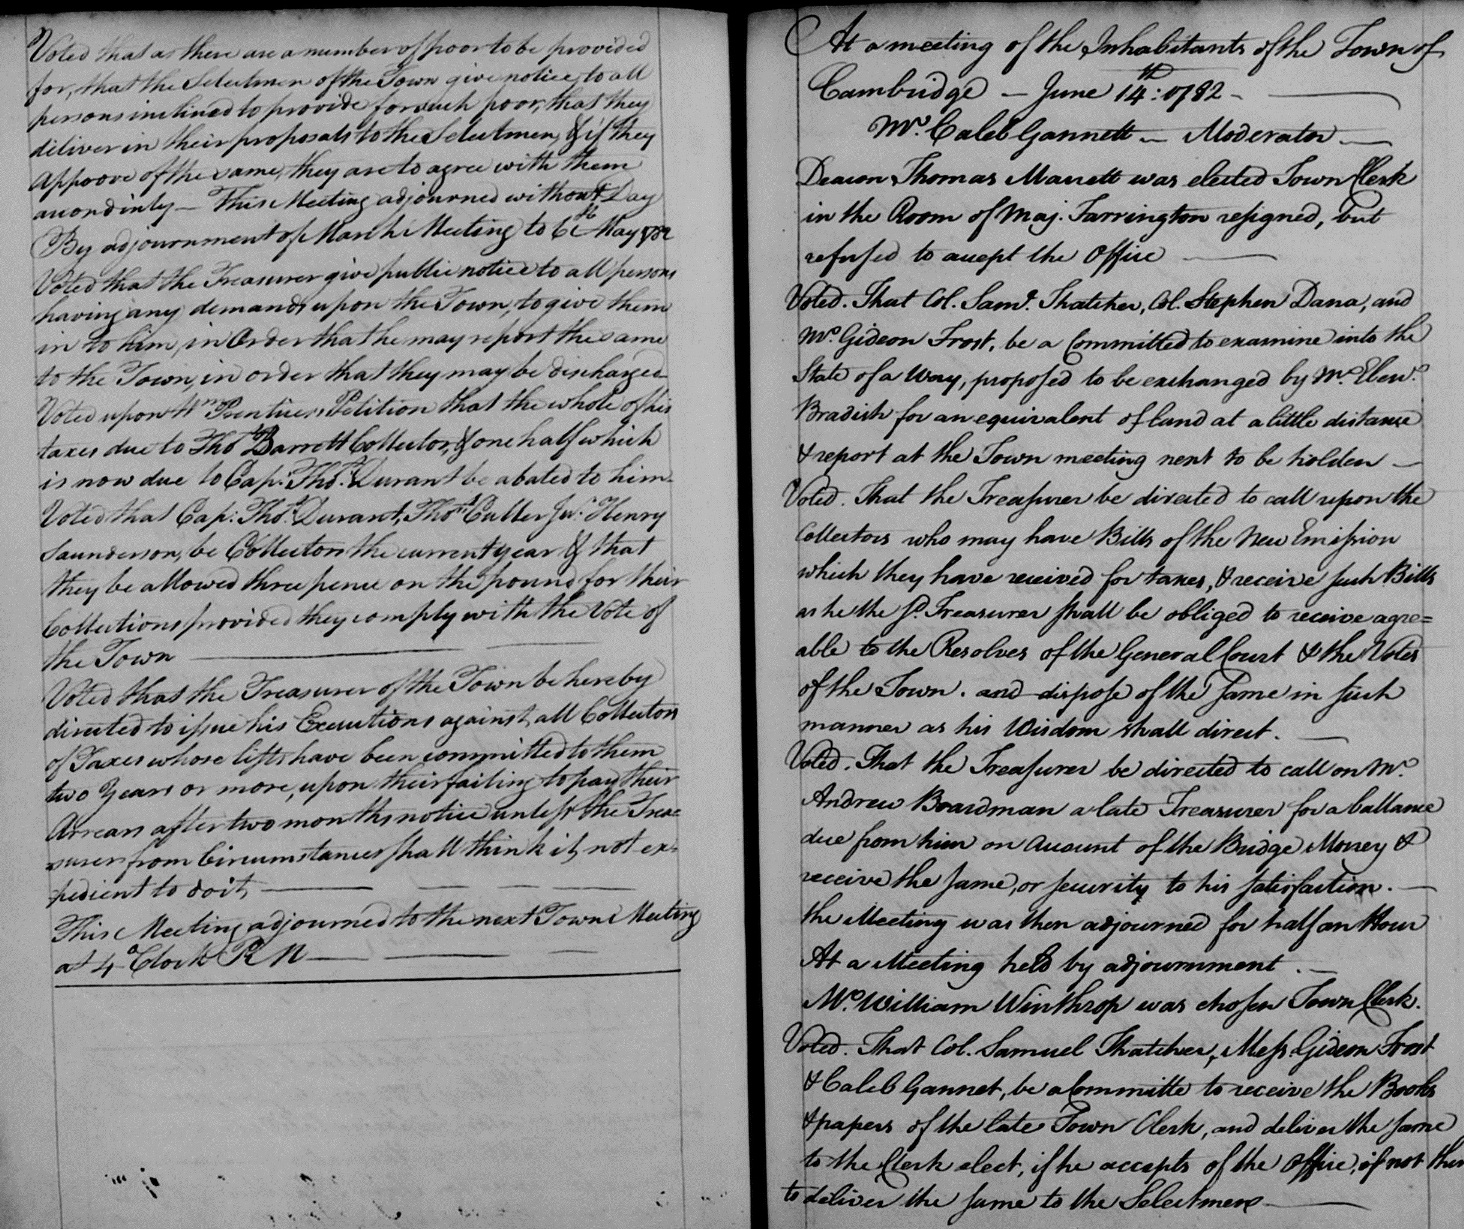 Voted that as there are a number of poor to be provided
for, that the Selectmen of the Town give notice to all
persons inclined to provide for such poor, that they
deliver in their proposals to the Selectmen, & if they
Approove of the same, they are to agree with them
accordinly — This Meeting adjourned without Day
By adjournment of March Meeting to 6th May 1782
Voted that the Treasurer give public notice to all persons
having any demands upon the Town, to give them
in to him, in Order that he may report the same
to the Town, in order that they may be discharged
Voted upon Wm Prentices Petition that the whole of his
taxes due to Thos Barrett Collector, & one half which
is now due to Cap. Thos. Durant be abated to him
Voted that Cap: Thos. Durant, Thos Cutler Jur. Henry
Saunderson, be Collectors the current year & that
they be allowed three pence on the pound for their
Collections provided they comply with the Vote of
the Town
Voted that the Treasurer of the Town be hereby
directed to issue his Executions against all Collectors
of Taxes whose lists have been committed to them
two Years or more, upon their failing to pay their
Arrears after two months notice unless the Trea=
surer from Circumstances shall think it not ex=
pedient to do it,
This Meeting adjourned to the next Town Meeting
at 4 Clock P M
At a meeting of the Inhabitants of the Town of
Cambridge — June 14th: 1782 -
Mr. Caleb Gannett — Moderator —
Deacon Thomas Marrett was elected Town Clerk
in the Room of Maj. Farrington resigned, but
refused to accept the Office
Voted. That Col. Saml. Thatcher, Col. Stephen Dana, and
Mr. Gideon Frost, be a Committed to examine into the
State of a Way, proposed to be exchanged by Mr. Ebenr.
Bradish for an equivalent of land at a little distance
& report at the Town meeting next to be holden —
Voted. That the Treasurer be directed to call upon the
Collectors who may have Bills of the New Emission
which they have received for taxes, & receive such Bills
as he the sd. Treasurer shall be obliged to receive agre=
able to the Resolves of the General Court & the Votes
of the Town. and dispose of the Same in such
manner as his Wisdom shall direct. —
Voted. That the Treasurer be directed to call on Mr.
Andrew Boardman a late Treasurer for a ballance
due from him on account of the Bridge Money &
receive the same, or security to his satisfaction. —
the Meeting was then adjourned for half an Hour
At a Meeting held by adjournment. —
Mr. William Winthrop was chosen Town Clerk.
Voted. That Col. Samuel Thatcher, Mess. Gideon Frost
& Caleb Gannet, be a Committe to receive the Books
& papers of the late Town Clerk, and deliver the same
to the Clerk elect, if he accepts of the Office, if not then
to deliver the same to the Selectmen